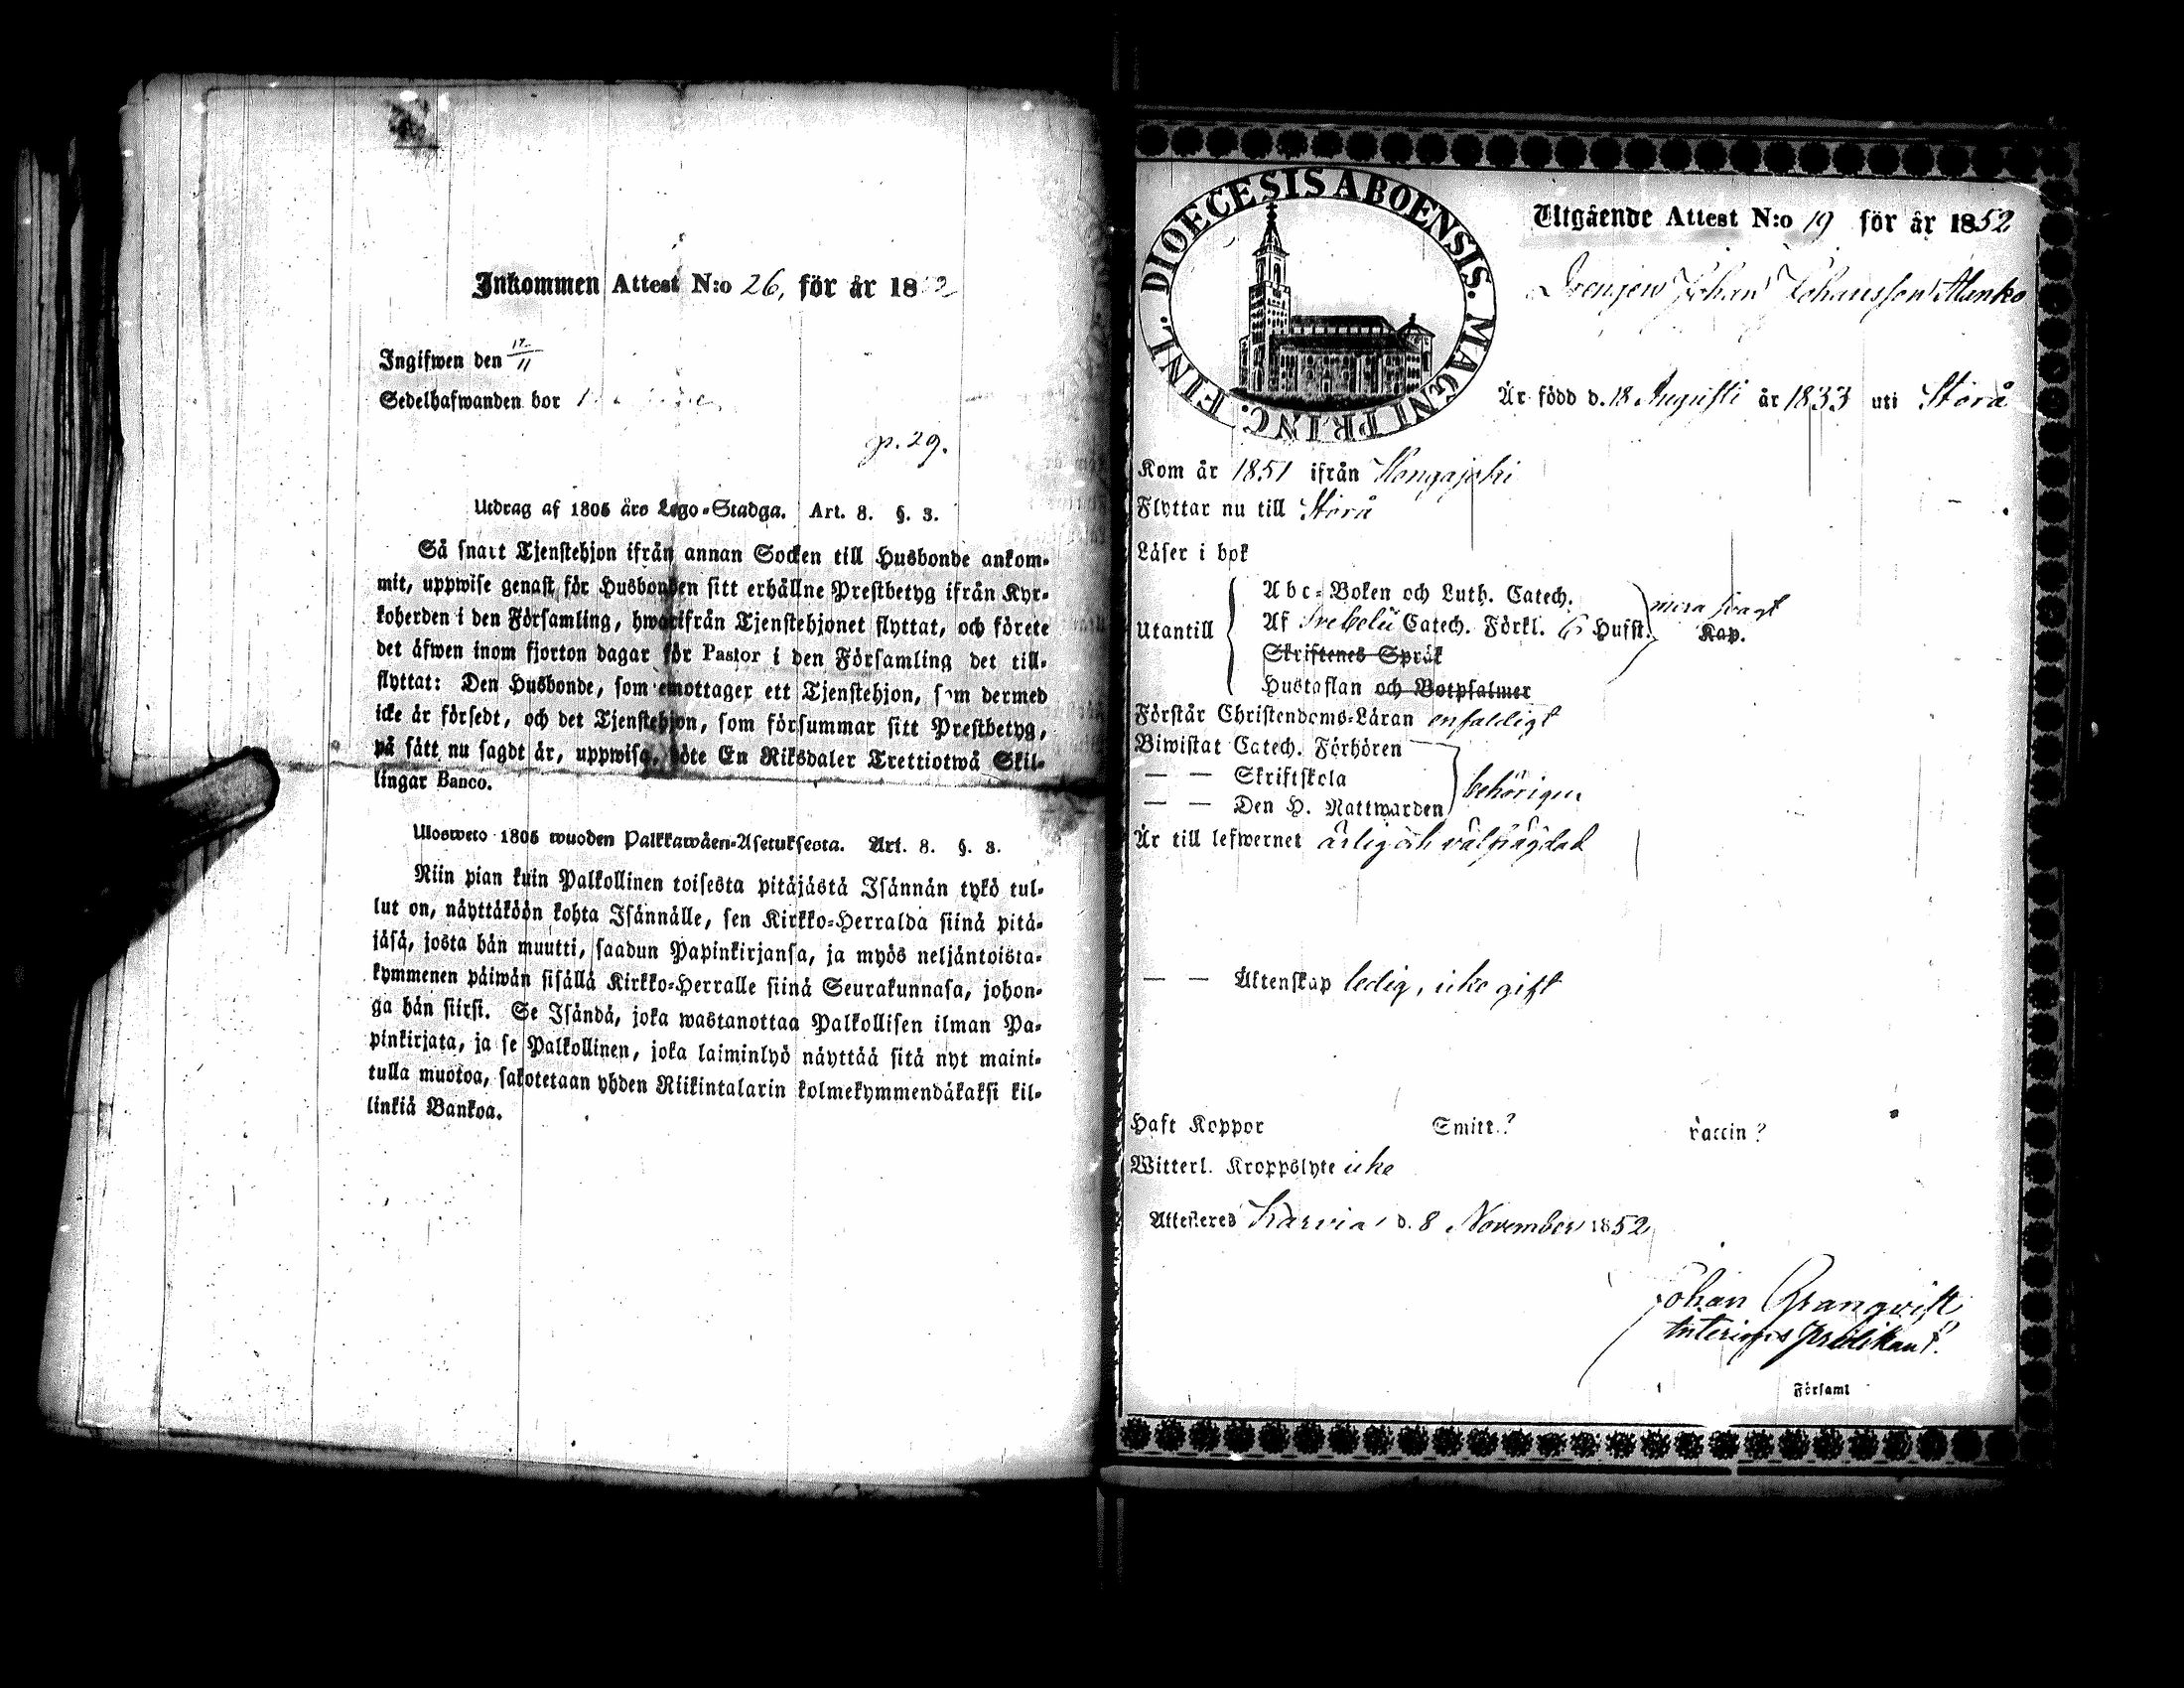 Inkommen Attest N:o 26, för år 1852
Ingifwen den 17/11
Sedelhafwanden bor
p. 29.
Utdrag af 1805 års Lego-Stadga. Art. 8. §. 3.
Så snart Tjenstehjon ifrån annan Socken till Husbonde ankom-
mit, uppwise genast för Husbonden sitt erhållne Prestbetyg ifrån Kyr-
koherden i den Församling, hwarifrån Tjenstehjonet flyttat, och förete
det äfwen inom fjorton dagar för Pastor i den Församling det till-
flyttat: Den Husbonde, som emottager ett Tjenstehjon, som dermed
icke är försedt, och det Tjenstehjon, som försummar sitt Prestbetyg,
på sätt nu sagdt är, uppwisa, böte En Riksdaler Trettiotwå Skil-
lingar Banco.
Ulosweto 1805 wuoden Palkkawäen-Asetuksesta. Art. 8. §. 3.
Niin pian kuin Palkollinen toisesta pitäjästä Isännän tykö tul-
lut on, näyttäköön kohta Isännälle, sen Kirkko-Herralda siinä pitä-
jäsä, josta hän muutti, saadun Papinkirjansa, ja myös neljäntoista-
kymmenen päiwän sisällä Kirkko-Herralle siinä Seurakunnasa, johon-
ga hän siirsi. Se Isändä, joka wastanottaa Palkollisen ilman Pa-
pinkirjata, ja se Palkollinen, joka laiminlyö näyttää sitä nyt maini-
tulla muotoa, sakotetaan yhden Riikintalarin kolmekymmendäkaksi kil-
linkiä Bankoa.
DIOECESIS ABOENSIS. MAGNI PRINC. FINL.
Utgående Attest N:o 19 för år 1852
Drengen Johan Johansson Alanko
Är född d. 18 Augusti år 1833 uti Storå
Kom år 1851 ifrån Hongajoki
Flyttar nu till Storå
Läser i bok
Utantill
Abc-Boken och Luth. Catech.
Af Svebelii Catech. Förkl. 6 Husst. Kap.
mera svagt
Skriftenes Språk
Hustaflan och Botpsalmer
Förstår Christendoms-Läran enfaldigt
Biwistat Catech. Förhören
— — Skriftskola
— — Den H. Nattwarden
behörigen
Är till lefwernet ärlig och välfrägdad
— — Äktenskap ledig, icke gift
Haft Koppor Smitt.? Vaccin?
Witterl. Kroppslyte icke
Attesteres Karvia d. 8 November 1852
Johan Granqvist
Interims predikant.
Församl